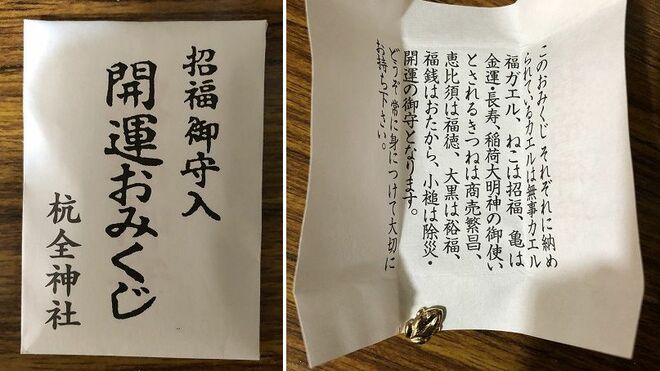 招福御守入
開運おみくじ
杭全神社
このおみくじそれぞれに納め
られているカエルは無事カエル
福ガエル、ねこは招福、亀は
金運・長寿、稲荷大明神の御使い
とされるきつねは商売繁昌、
恵比須は福徳、大黒は裕福、
福銭はおたから、小槌は除災・
開運の御守となります。
どうぞ常に身につけて大切に
お持ち下さい。